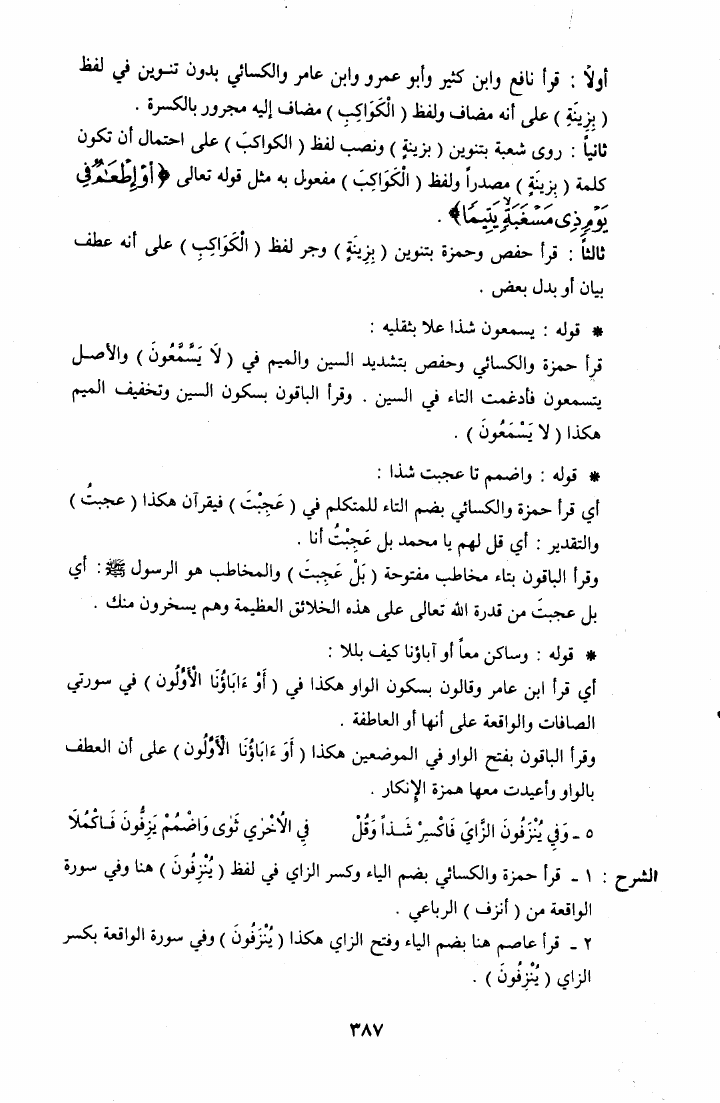 أولاً : قرأ نافع وابن كثير وأبو عمرو وابن عامر والكسائي بدون تنوين في لفظ
( بِزِينَةِ ) على أنه مضاف ولفظ ( الْكَوَاكِبِ ) مضاف إليه مجرور بالكسرة .
ثانياً : روى شعبة بتنوين ( بزينةٍ ) ونصب لفظ ( الكواكبَ ) على احتمال أن تكون
كلمة ( بزينَةٍ ) مصدراً ولفظ ( الْكَوَاكِبَ ) مفعول به مثل قوله تعالى ﴿ أَوْ إِطْعَٰمٌ فِي
يَوْمٍ ذِي مَسْغَبَةٍ يَتِيمًا ﴾ .
ثالثاً : قرأ حفص وحمزة بتنوين ( بِزِينَةٍ ) وجر لفظ ( الْكَوَاكِبِ ) على أنه عطف
بيان أو بدل بعض .
* قوله : يسمعون شذا علا بثقليه :
قرأ حمزة والكسائي وحفص بتشديد السين والميم في ( لَا يَسَّمَّعُونَ ) والأصل
يتسمعون فأدغمت التاء في السين . وقرأ الباقون بسكون السين وتخفيف الميم
هكذا ( لا يَسْمَعُونَ ) .
* قوله : واضمم تا عجبت شذا :
أي قرأ حمزة والكسائي بضم التاء للمتكلم في ( عَجِبْتَ ) فيقرآن هكذا ( عجبتُ )
والتقدير : أي قل لهم يا محمد بل عَجِبْتُ أنا .
وقرأ الباقون بتاء مخاطب مفتوحة ( بَلْ عَجِبتَ ) والمخاطب هو الرسول ﷺ : أي
بل عجبتَ من قدرة الله تعالى على هذه الخلائق العظيمة وهم يسخرون منك .
* قوله : وساكن معاً أو آباؤنا كيف بللا :
أي قرأ ابن عامر وقالون بسكون الواو هكذا في ( أَوْ ءَابَاؤُنَا الْأَوَّلُون ) في سورتي
الصافات والواقعة على أنها أو العاطفة .
وقرأ الباقون بفتح الواو في الموضعين هكذا ( أَوَ ءَابَاؤُنَا الْأَوَّلُون ) على أن العطف
بالواو وأعيدت معها همزة الإنكار .
٥ ـ وَفِي يُنْزَفُونَ الزَّايَ فَاكْسِرْ شَذاً وَقُلْ فِي الْأُخْرَى ثَوَى وَاضْمُمْ يَزِفُّونَ فَاكْمُلَا
الشرح : ١ ـ قرأ حمزة والكسائي بضم الياء وكسر الزاي في لفظ ( يُنْزِفُونَ ) هنا وفي سورة
الواقعة من ( أنزف ) الرباعي .
٢ ـ قرأ عاصم هنا بضم الياء وفتح الزاي هكذا ( يُنْزَفُونَ ) وفي سورة الواقعة بكسر
الزاي ( يُنْزِفُونَ ) .
٣٨٧